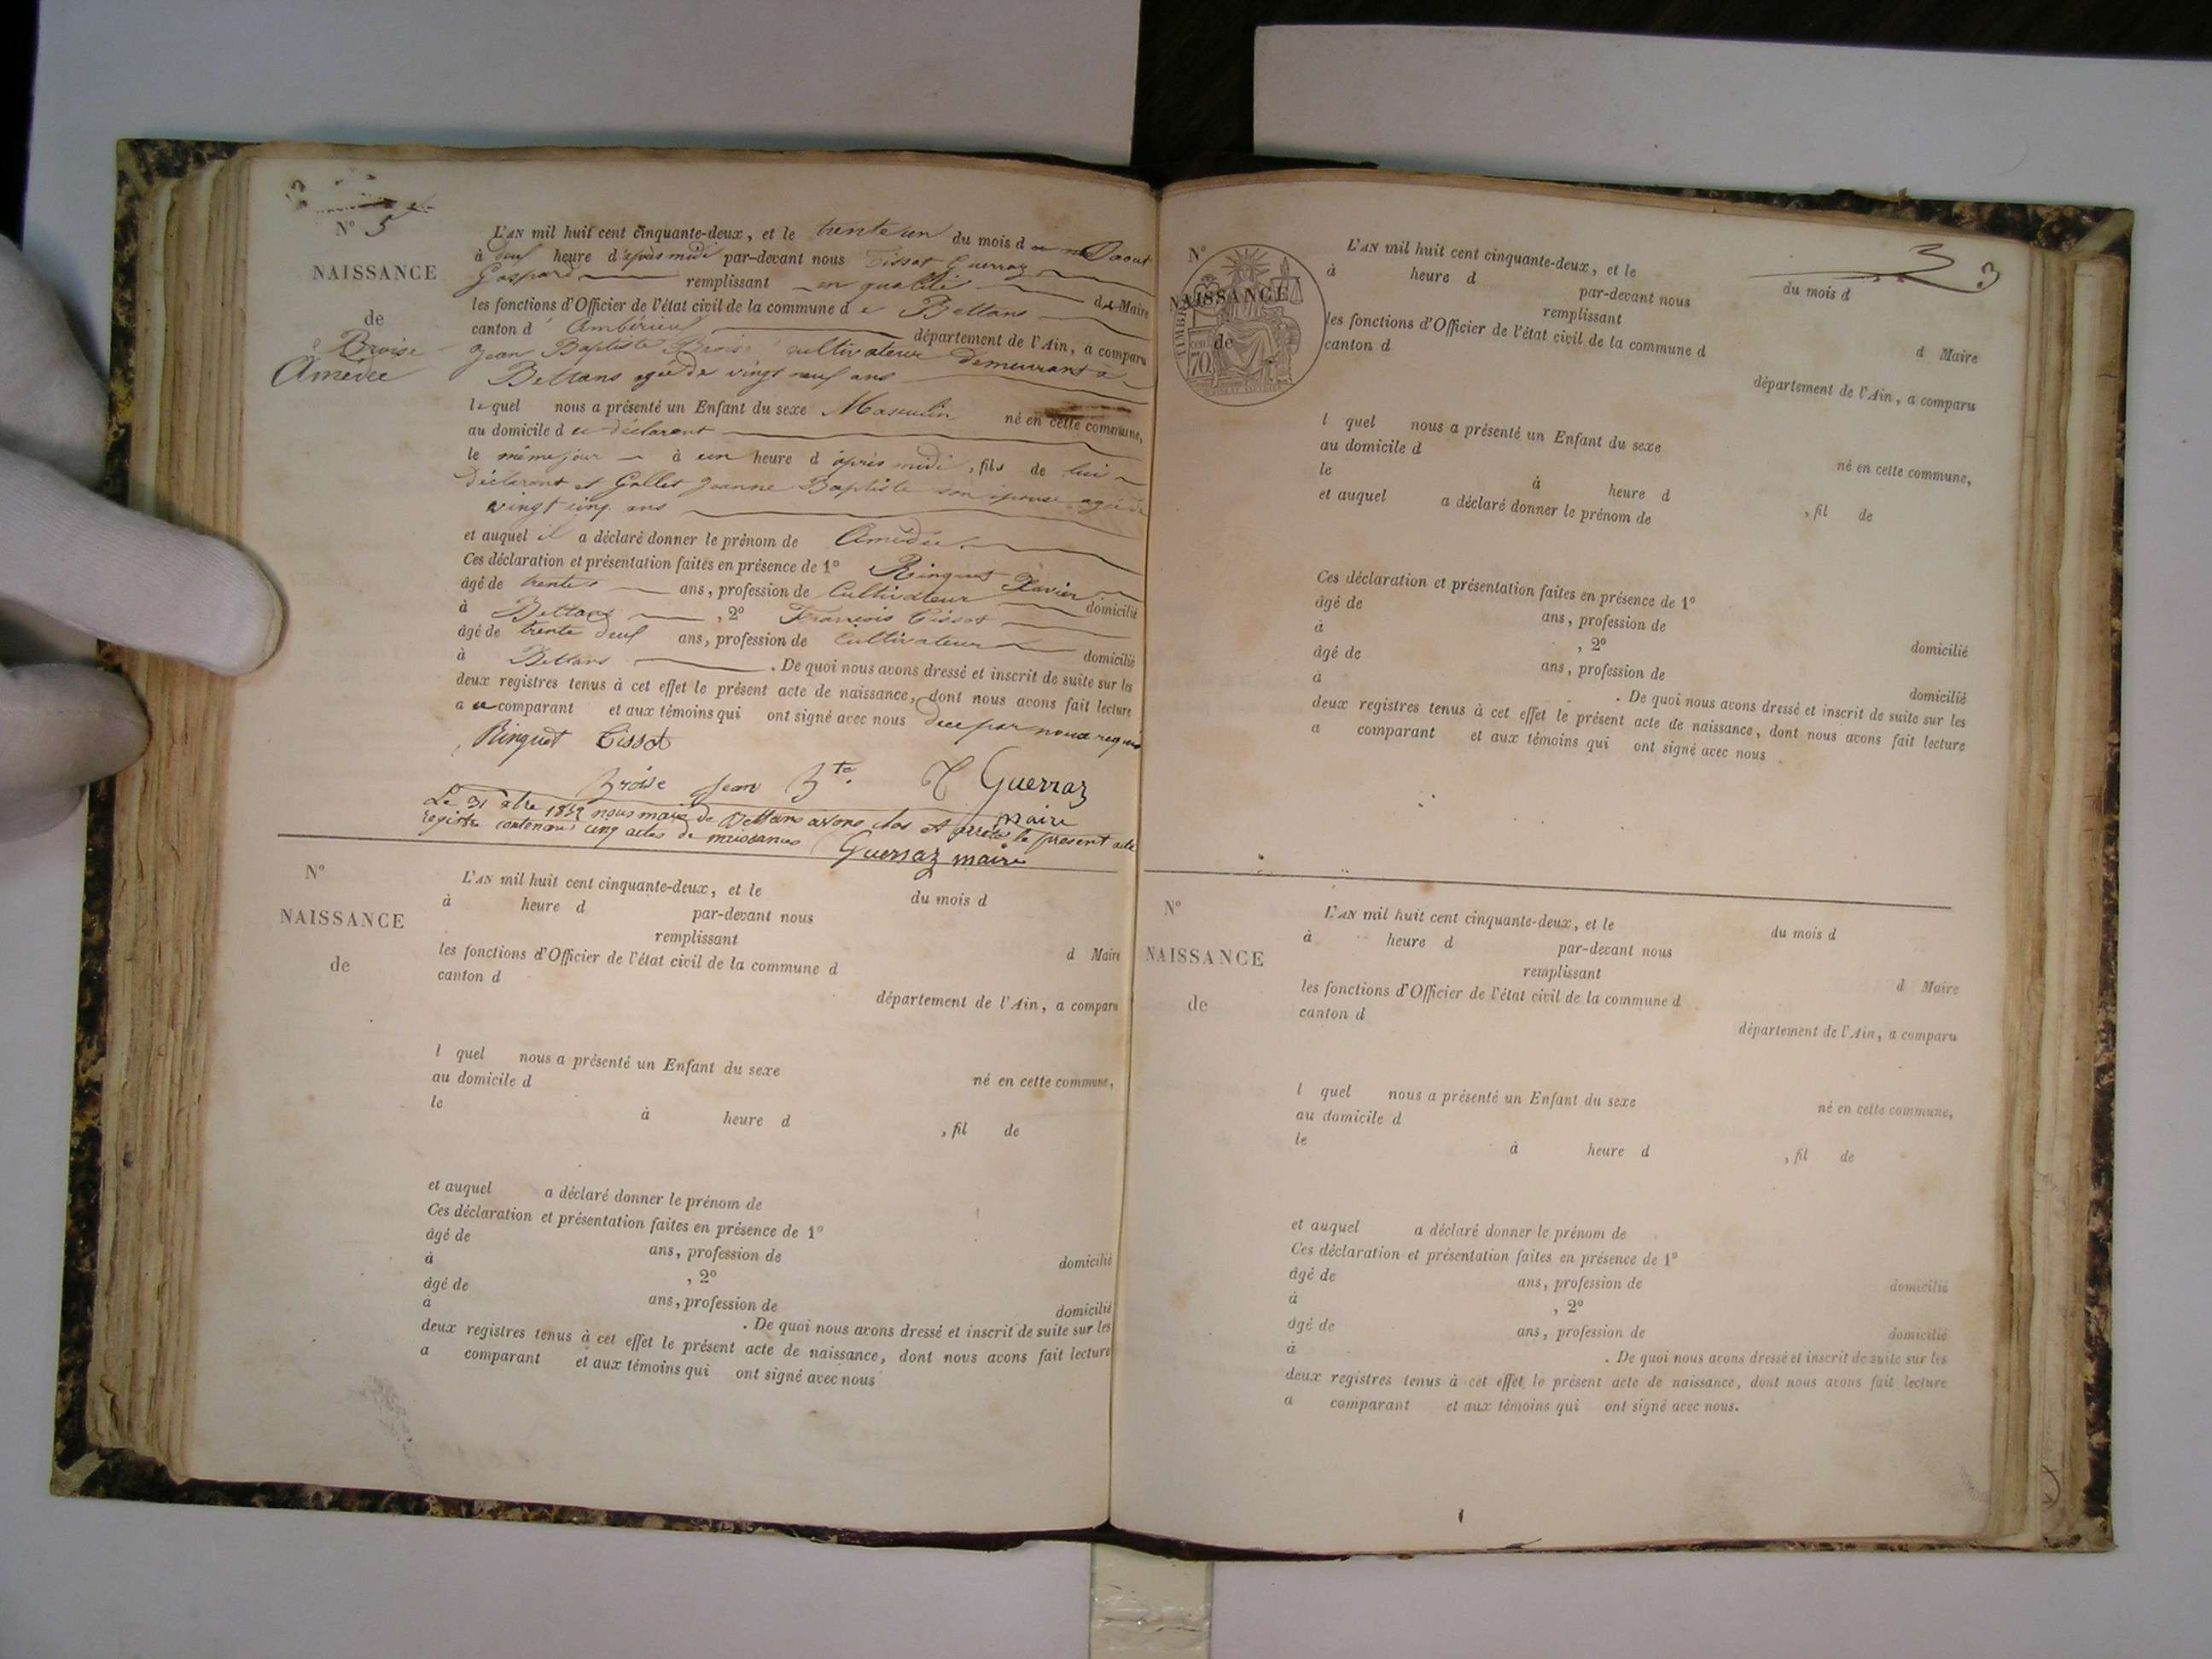 N° 5
NAISSANCE
de
Broise
Amédée
L'AN mil huit cent cinquante-deux, et le trente un du mois d aout
à deux heure d'après midi par-devant nous Tissot Guerraz
Gaspard remplissant en qualité de Maire
les fonctions d'Officier de l'état civil de la commune de Bettans
canton d'Ambérieux département de l'Ain, a comparu
Jean Baptiste Broise cultivateur demeurant à
Bettans agé de vingt neuf ans
lequel nous a présenté un Enfant du sexe Masculin né en cette commune,
au domicile du déclarant
le même jour à un heure d'après midi, fils de lui
déclarant et Gallet Jeanne Baptiste son épouse agée de
vingt cinq ans
et auquel il a déclaré donner le prénom de Amédée
Ces déclaration et présentation faites en présence de 1° Ringuet Xavier
âgé de trente ans, profession de Cultivateur domicilié
à Bettans, 2° François Tissot
âgé de trente deux ans, profession de Cultivateur domicilié
à Bettans. De quoi nous avons dressé et inscrit de suite sur les
deux registres tenus à cet effet le présent acte de naissance, dont nous avons fait lecture
au comparant et aux témoins qui ont signé avec nous de ce par nous requis
Ringuet Tissot
Broise Jean Bte. T Guerraz
maire
Le 31 xbre 1852 nous maire de Bettans avons clos et arrêté le present
registre contenant cinq actes de naissances Guerraz maire
N°
NAISSANCE
de
L'AN mil huit cent cinquante-deux, et le du mois d
à heure d par-devant nous
remplissant d Maire
les fonctions d'Officier de l'état civil de la commune d
canton d département de l'Ain, a comparu
l quel nous a présenté un Enfant du sexe né en cette commune,
au domicile d
le à heure d , fil de
et auquel a déclaré donner le prénom de
Ces déclaration et présentation faites en présence de 1°
âgé de ans, profession de domicilié
à , 2°
âgé de ans, profession de domicilié
à . De quoi nous avons dressé et inscrit de suite sur les
deux registres tenus à cet effet le présent acte de naissance, dont nous avons fait lecture
a comparant et aux témoins qui ont signé avec nous
3 3
N°
NAISSANCE
de
TIMBRE
70
L'AN mil huit cent cinquante-deux, et le du mois d
à heure d par-devant nous
remplissant d Maire
les fonctions d'Officier de l'état civil de la commune d
canton d département de l'Ain, a comparu
l quel nous a présenté un Enfant du sexe né en cette commune,
au domicile d
le à heure d , fil de
et auquel a déclaré donner le prénom de
Ces déclaration et présentation faites en présence de 1°
âgé de ans, profession de domicilié
à , 2°
âgé de ans, profession de domicilié
à . De quoi nous avons dressé et inscrit de suite sur les
deux registres tenus à cet effet le présent acte de naissance, dont nous avons fait lecture
a comparant et aux témoins qui ont signé avec nous
N°
NAISSANCE
de
L'AN mil huit cent cinquante-deux, et le du mois d
à heure d par-devant nous
remplissant d Maire
les fonctions d'Officier de l'état civil de la commune d
canton d département de l'Ain, a comparu
l quel nous a présenté un Enfant du sexe né en cette commune,
au domicile d
le à heure d , fil de
et auquel a déclaré donner le prénom de
Ces déclaration et présentation faites en présence de 1°
âgé de ans, profession de domicilié
à , 2°
âgé de ans, profession de domicilié
à . De quoi nous avons dressé et inscrit de suite sur les
deux registres tenus à cet effet le présent acte de naissance, dont nous avons fait lecture
a comparant et aux témoins qui ont signé avec nous.